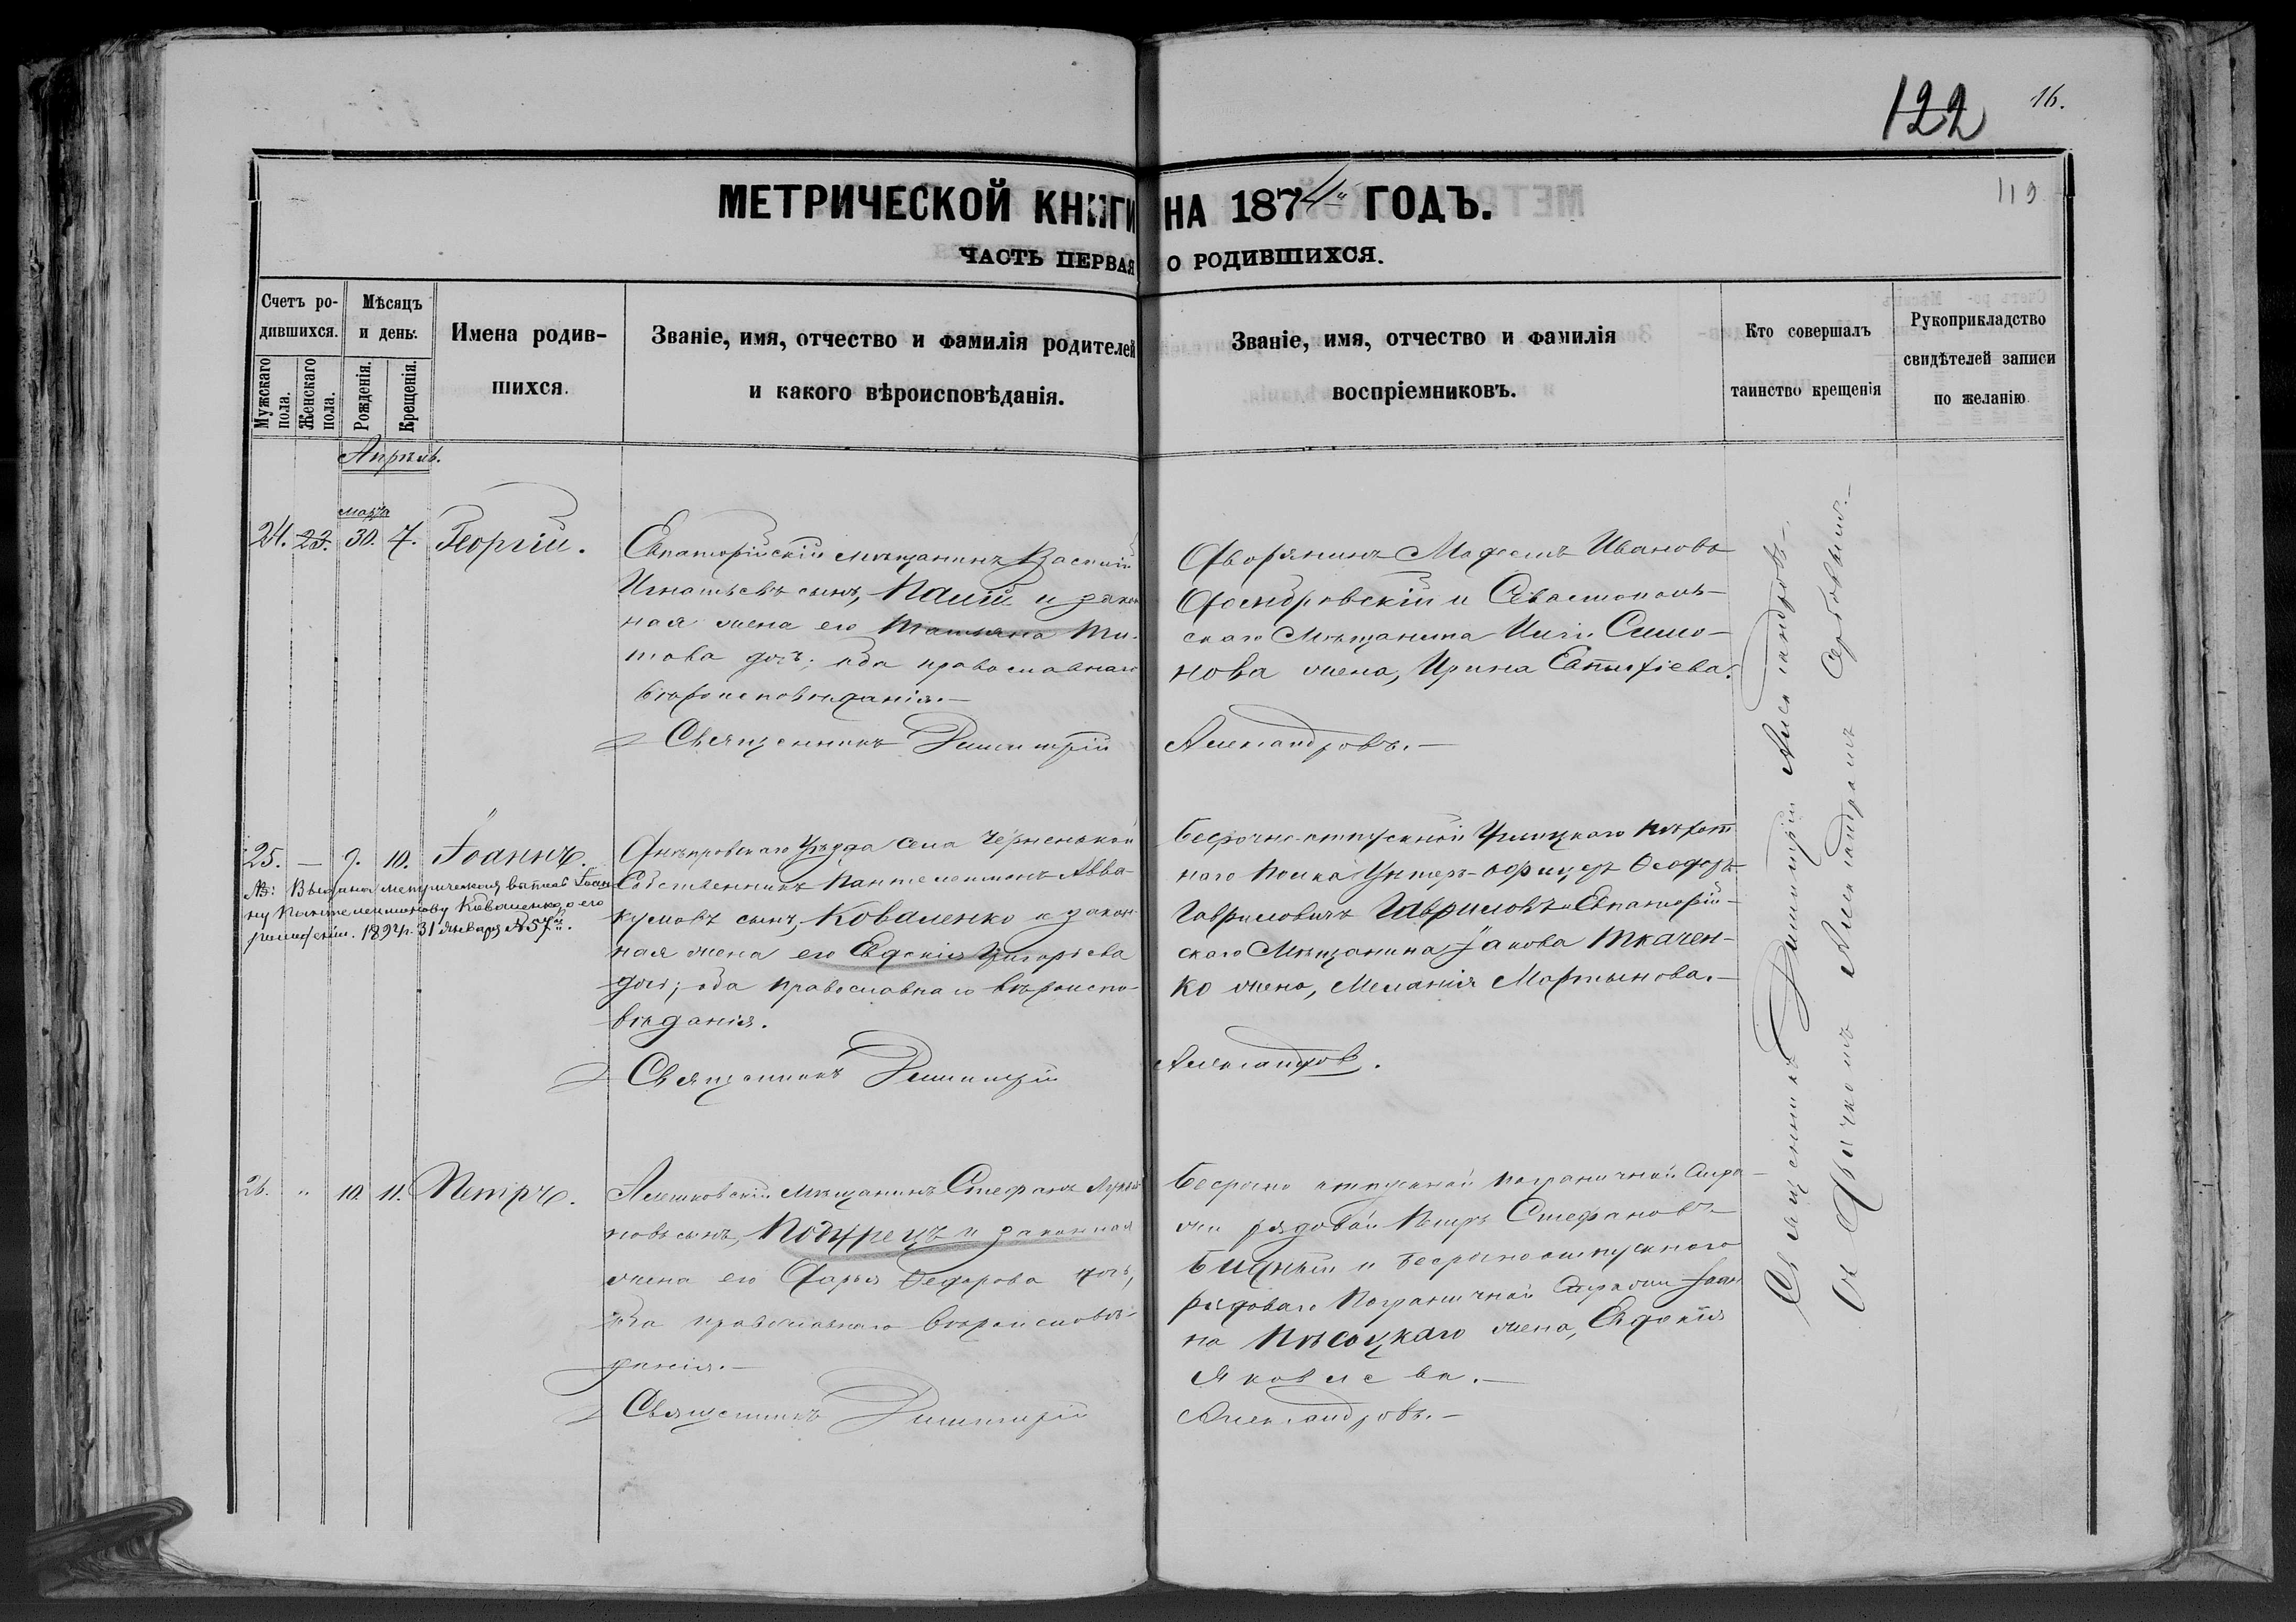 122 16.
119
МЕТРИЧЕСКОЙ КНИГИ НА 1874й ГОДЪ.
ЧАСТЬ ПЕРВАЯ О РОДИВШИХСЯ.
Счетъ ро-
дившихся.
Мужскаго пола.
Женскаго пола.
Мѣсяцъ
и день.
Рожденія.
Крещенія.
Имена родив-
шихся.
Званіе, имя, отчество и фамилія родителей
и какого вѣроисповѣданія.
Званіе, имя, отчество и фамилія
воспріемниковъ.
Кто совершалъ
таинство крещенія
Рукоприкладство
свидѣтелей записи
по желанію
Апрѣль.
марта
24. 23. 30. 7. Георгій.
Евпаторійскій мѣщанинъ
Игнатьевъ сынъ, и закон
ная жена его Татьяна Ти-
това дочь; оба православнаго
вѣроисповѣданія.—
Священникъ Димитрій
Дворянинъ Модестъ Ивановъ
и Севастополь-
скаго Мѣщанина Симо-
нова жена, Ирина
Александровъ.—
25. — 9. 10. Іоаннъ.
№: Выдана метрическая выпись Іоан
ну Пантелеимонову Коваленко о его
рожденіи. 1894г. 31 января № 57й.
Днѣпровскаго Уѣзда села Черненькой
Собственникъ Пантелеимонъ Авва-
кумовъ сынъ, Коваленко и закон-
ная жена его Евдокія Григорьева
дочь; оба православнаго вѣроиспо-
вѣданія.
Священникъ Димитрій
безсрочно-отпускной пѣхот
наго полка Унтеръ-офицеръ Ѳеодоръ
Гавриловичъ Гавриловъ и Евпаторій-
скаго Мѣщанина Іакова Ткачен-
ко жена, Меланія Мартынова.—
Александровъ.
26. " 10. 11. Петръ.
Алешковскій Мѣщанинъ Стефанъ
новъ сынъ, и законная
жена его Дарья Федорова дочь,
оба православнаго вѣроисповѣ-
данія.—
Священникъ Димитрій
безсрочно отпускной пограничной Стра-
жи рядовой Петръ Стефановъ
и безсрочноотпускнаго
рядоваго Пограничной Стражи Іоан
на Пѣсоцкаго жена, Евдокія
Яковлева.—
Александровъ.—
Священникъ Димитрій Александровъ—
съ Дьячкомъ Александромъ